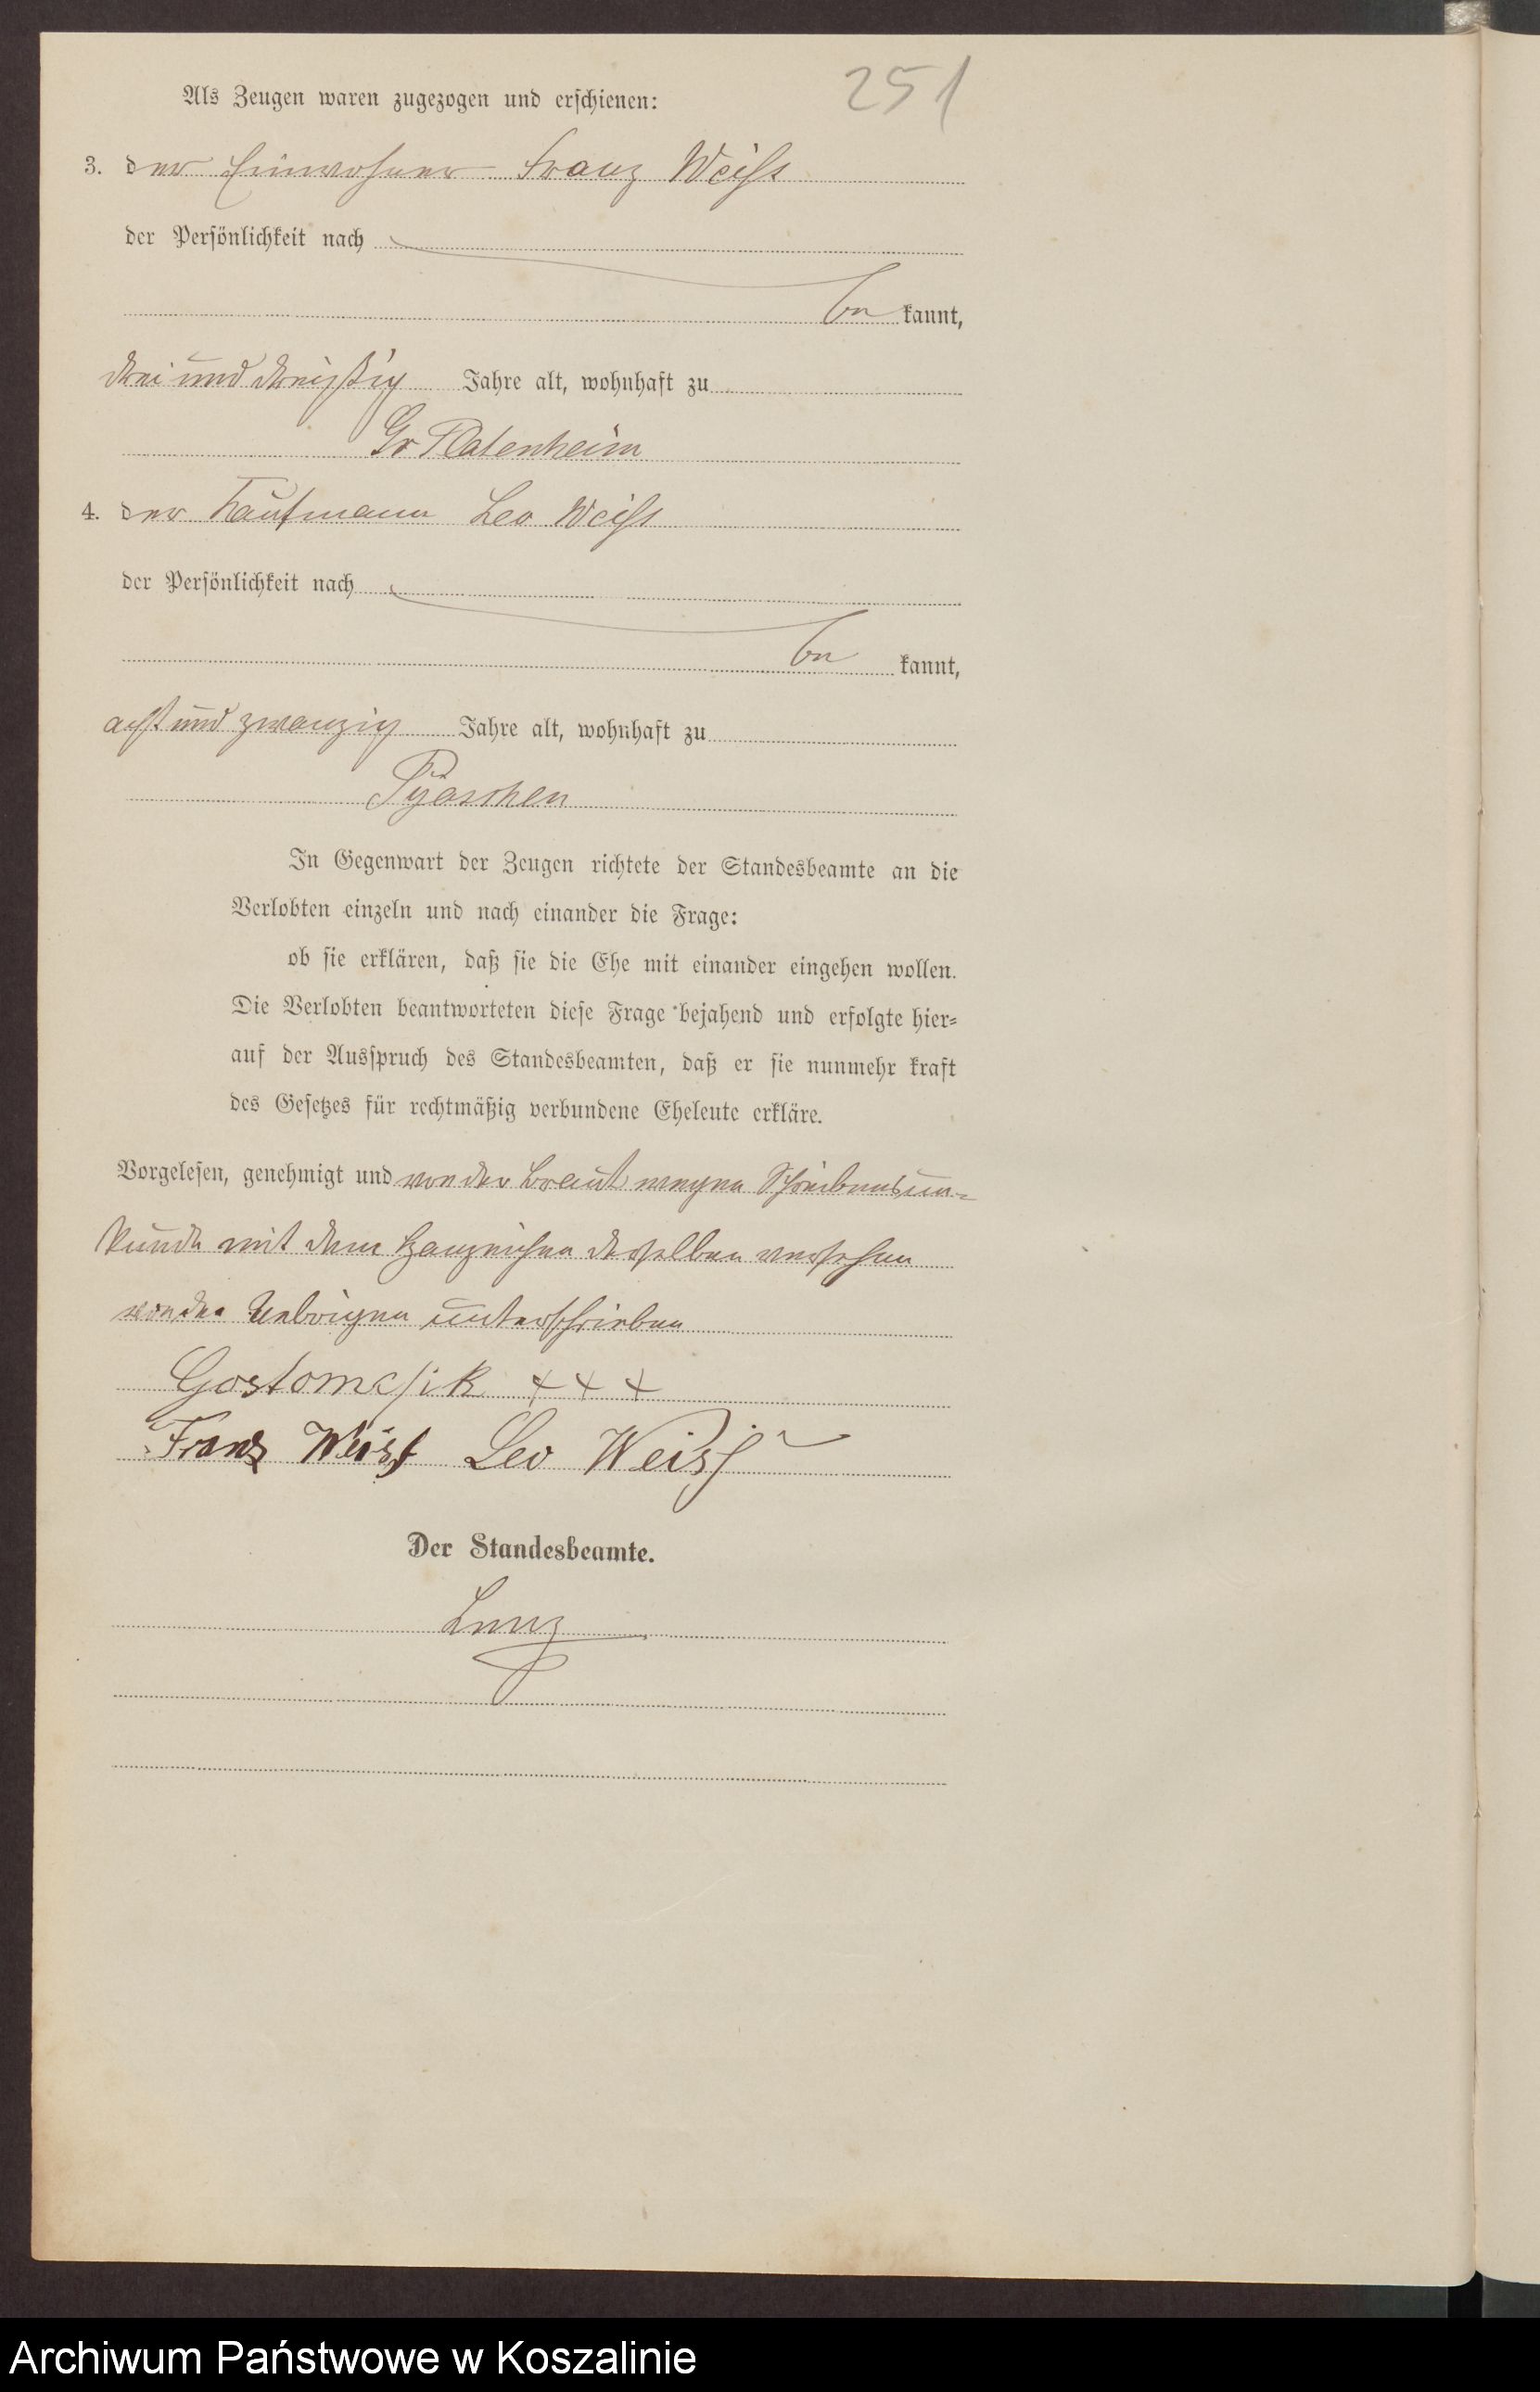 251
Als Zeugen waren zugezogen und erschienen:
3. der Einwohner Franz Weiß
der Persönlichkeit nach
be kannt,
drei und dreißig Jahre alt, wohnhaft zu
Gr Platenheim
4. der Kaufmann Leo Weiß
der Persönlichkeit nach
be kannt,
acht und zwanzig Jahre alt, wohnhaft zu
Pyaschen
In Gegenwart der Zeugen richtete der Standesbeamte an die
Verlobten einzeln und nach einander die Frage:
ob sie erklären, daß sie die Ehe mit einander eingehen wollen.
Die Verlobten beantworteten diese Frage bejahend und erfolgte hier-
auf der Ausspruch des Standesbeamten, daß er sie nunmehr kraft
des Gesetzes für rechtmäßig verbundene Eheleute erkläre.
Vorgelesen, genehmigt und von der Braut wegen Schreibensun-
kunde mit dem Handzeichen derselben versehen
von den Uebrigen unterschrieben
+++
Franz Weiss Leo Weiss
Der Standesbeamte.
Archiwum Państwowe w Koszalinie